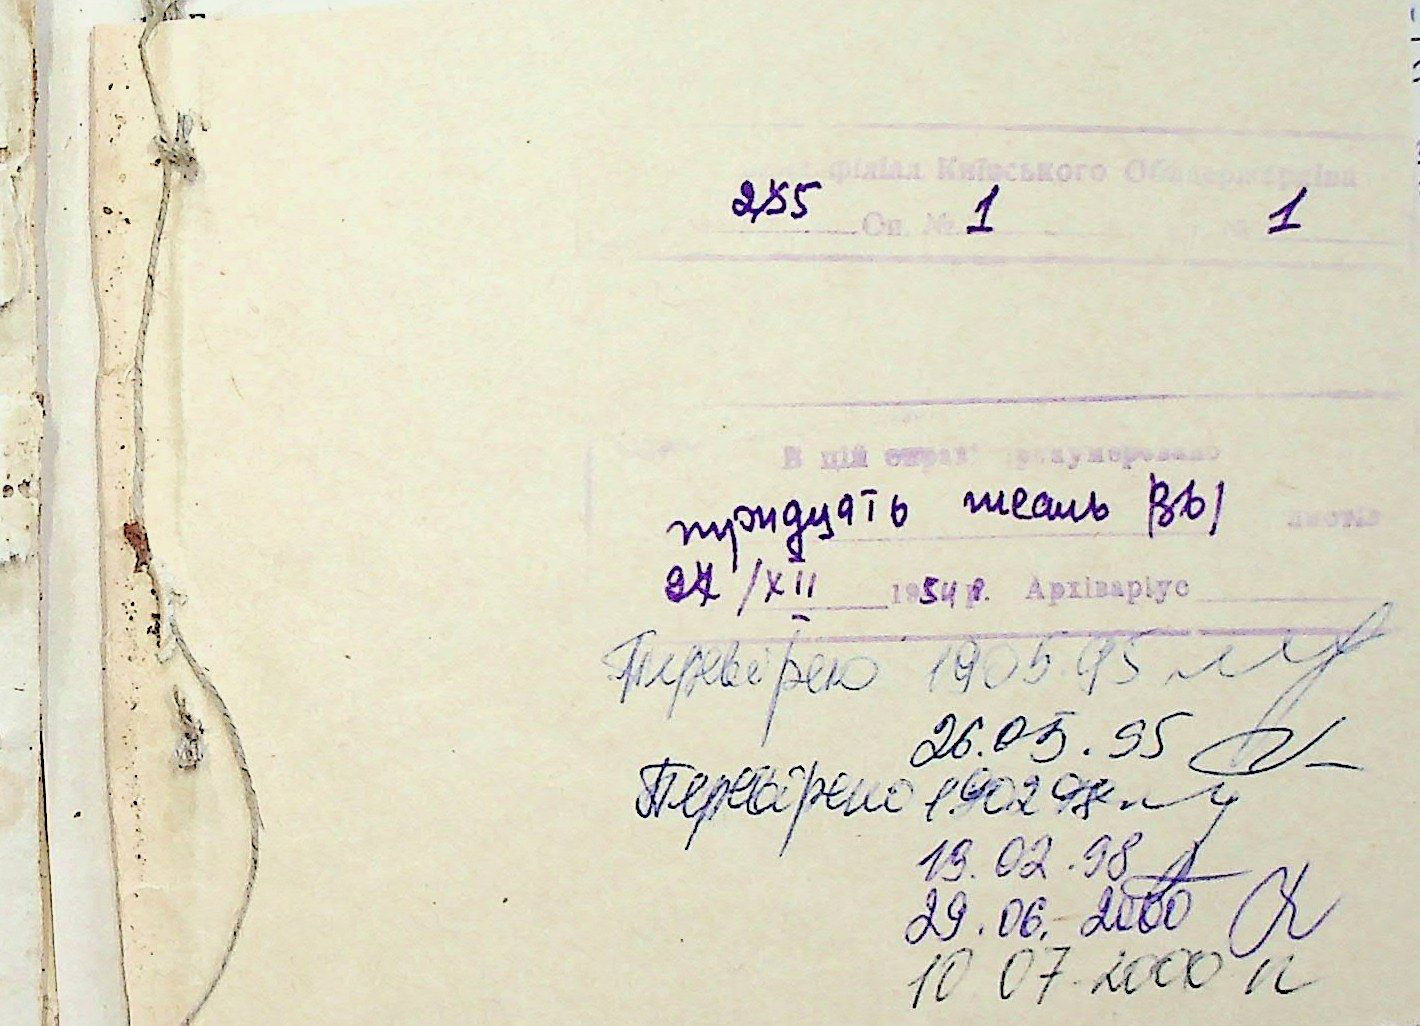 філіал Київського Облдержархіва
255 Оп. № 1 1
В цій справі пронумеровано
тридцять шість /36/ листів
27/XII 1954 р. Архіваріус
Перевірено 19.05.95
26.05.95
Перевірено 19.02.98
19.02.98
29.06.2000
10 07.2000